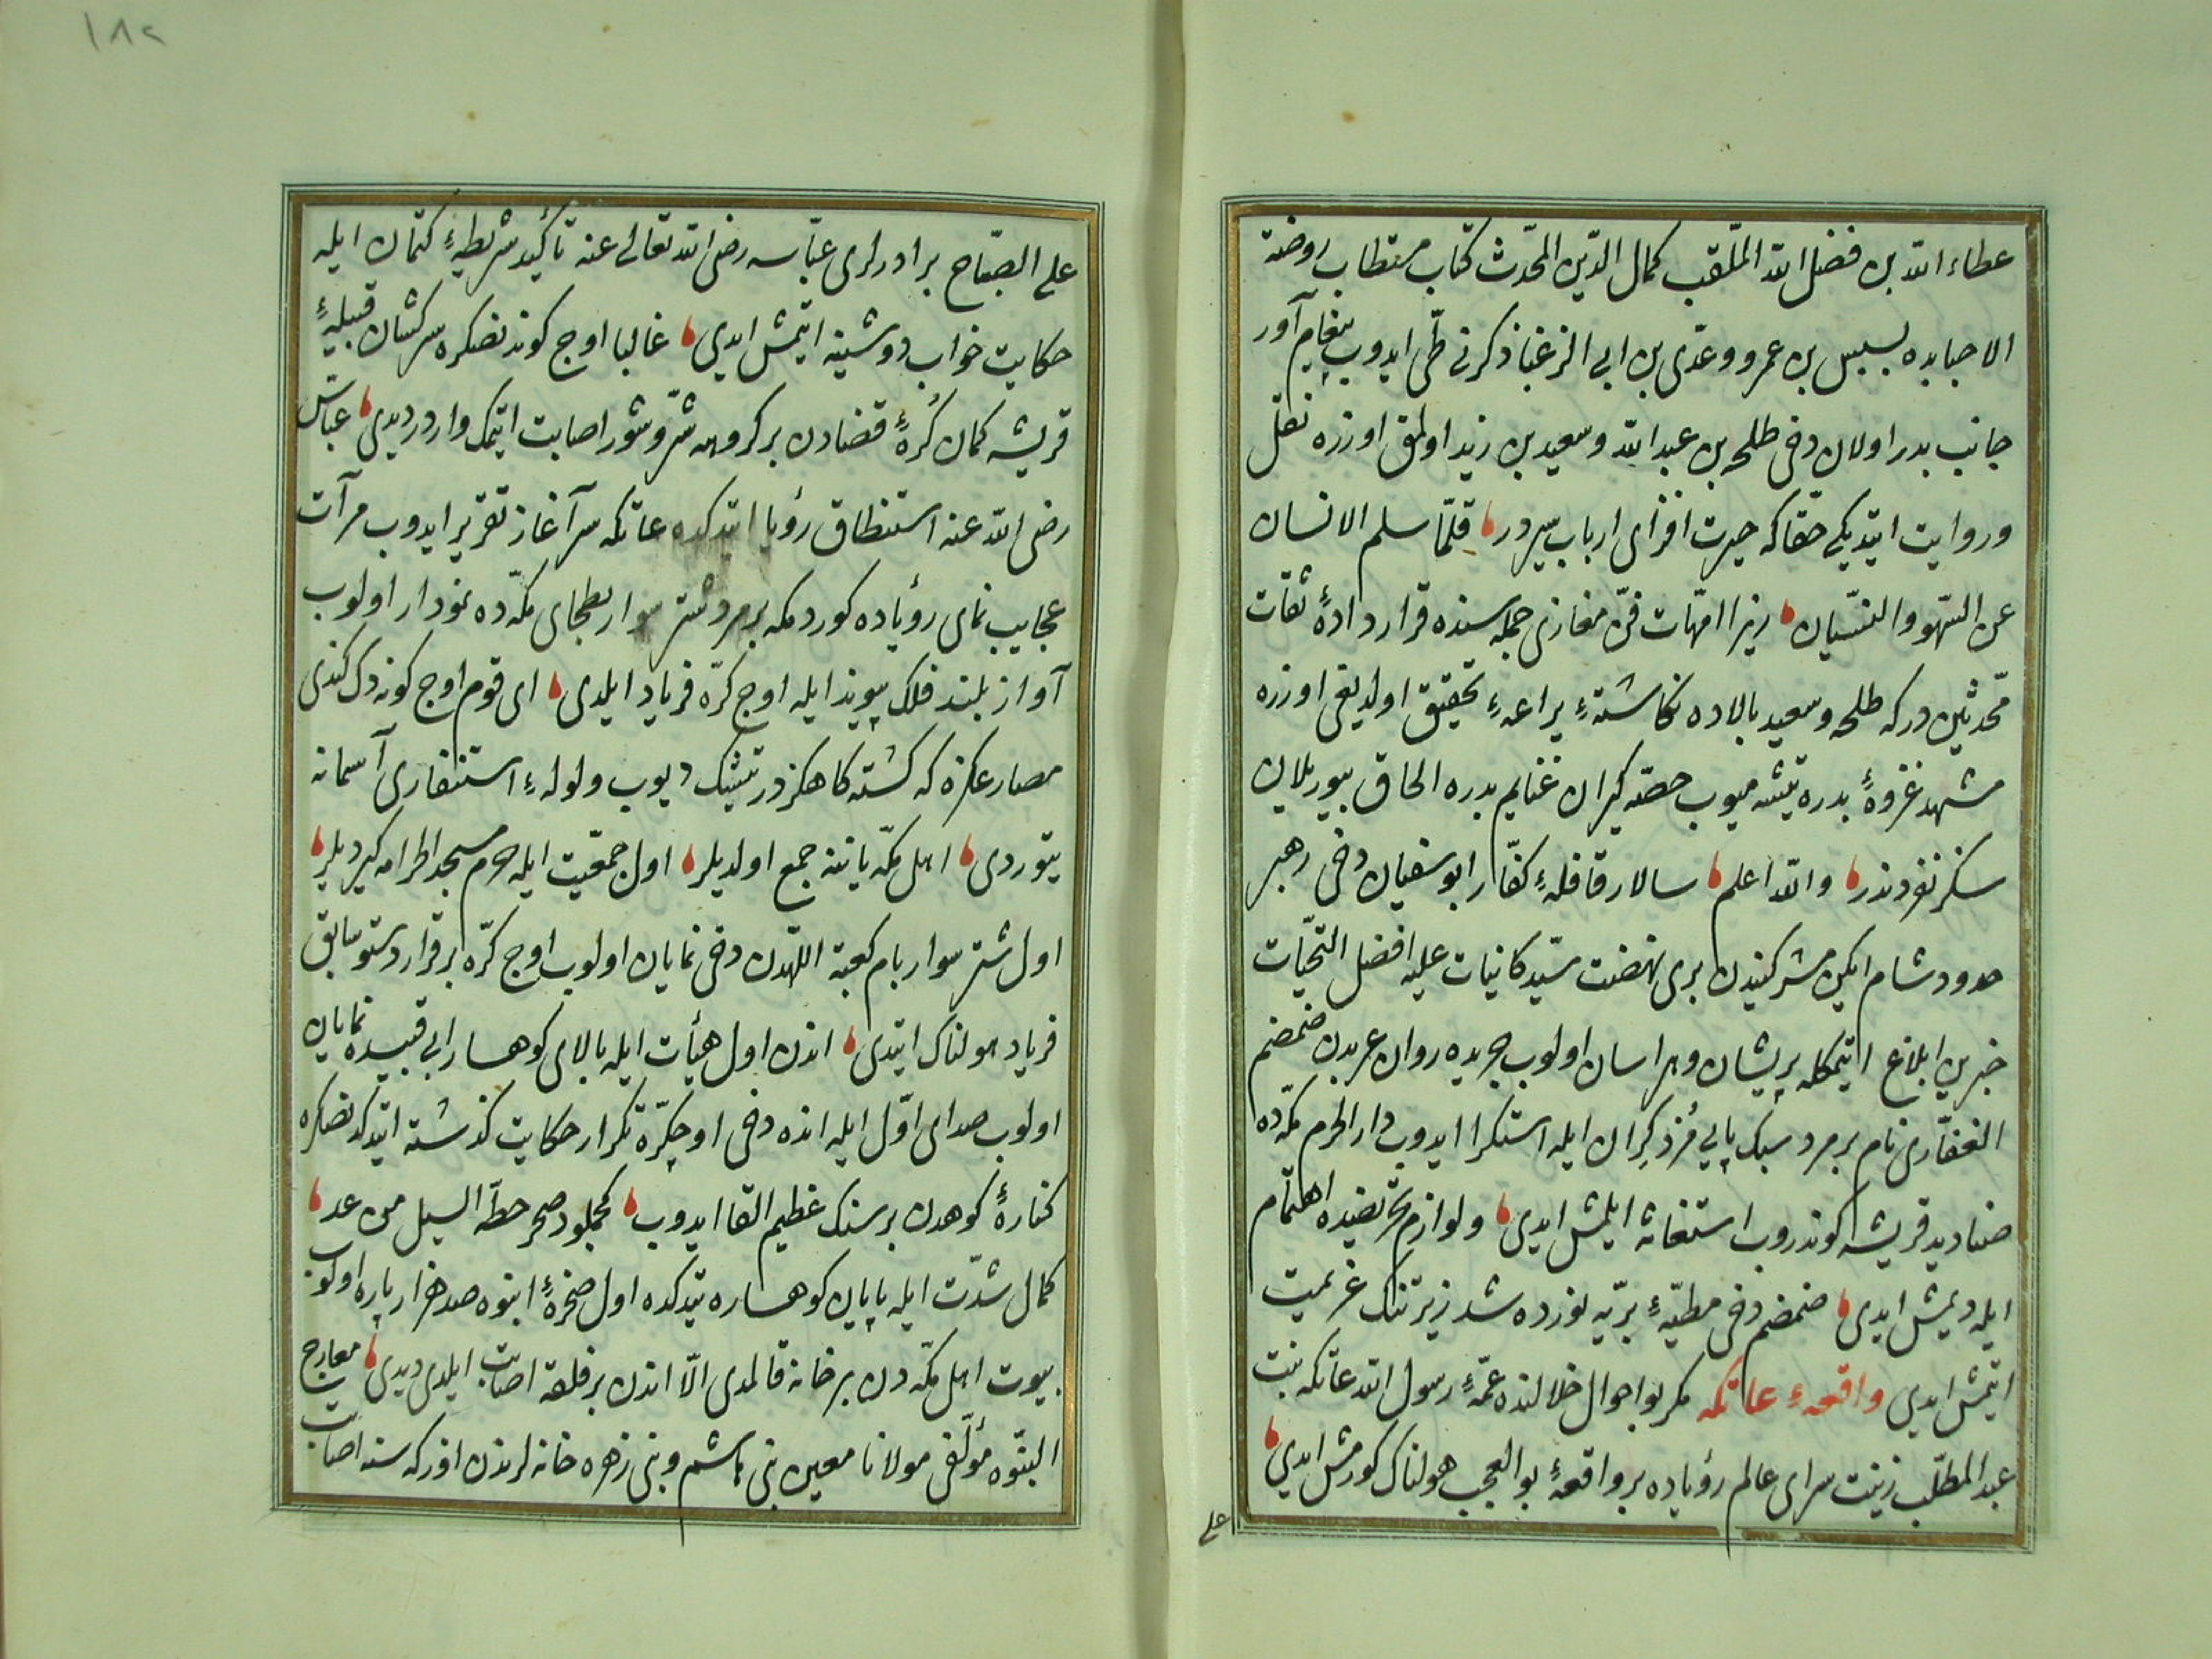 عطاء الله بن فضل الله الملقب كمال الدين المحدث كتاب مستطاب روضة
الاحبابده بسبس بن عمرو و عدّى بن ابى الزغبا ذكرنى طىّ ايدوب پيغام آور
جانب بدر اولان دخى طلحه بن عبد الله و سعيد بن زيد اولمق اوزره نقل
و روايت ايتديكى حقّا كه حيرت افزاى ارباب سيردر قلّما سلم الانسان
عن السّهو و النسّيان زيرا امهّات فنّ مغازى جمله سنده قرار دادهٔ ثقات
محّدثين دركه طلحه و سعيد بالاده نكاشتهٔ يراعهٔ تحقيق اولديغى اوزره
مشهد غزوهٔ بدره يتشه ميوب حصّه كيران غنايم بدره الحاق بيوريلان
سكز نفردندر والله اعلم سالار قافلهٔ كفّار ابو سفيان دخى رهبر
حدود شام ايكن مشركيندن برى نهضت سيّد كائنات عليه افضل التحيّات
خبرين ابلاغ ايتمكله پريشان و هراسان اولوب جريده روان عربدن ضمضم
الغفّارى نام بر مرد سبك پايى مزد كران ايله استكرا ايدوب دار الحرم مكّه ده
صناديد قريشه كوندروب استغاثه ايلمش ايدى و لوازم تحريضيده اهتمام
ايله ديمش ايدى ضمضم دخى مطيّهٔ برّيه نورده شد زير تنك عزيمت
ايتمش ايدى واقعهٔ عاتكه مكر بو احوال خلالنده عمّهٔ رسول الله عاتكه بنت
عبد المطلّب زينت سراى عالم رؤياده بر واقعهٔ بو العجب هولناك كورمش ايدى
على
١٨٢
على الصبّاح برادرلرى عبّاسه رضى الله تعالى عنه تأكيد شريطهٔ كتمان ايله
حكايت خواب دوشينه ايتمش ايدى غالبا اوج كوندنصكره سركشان قبيلهٔ
قريشه كمان كرهٔ قضادن بر كروهه شرّ و شور اصابت ايتمك واردر ديدى عبّاس
رضى الله عنه استنطاق رؤيا ايتدكده عاتكه سر آغاز تقرير ايدوب مرآت
عجايب نماى رؤياده كوردمكه بر مرد شتر سوار بطحاى مكّه ده نمودار اولوب
آواز بلند فلك پيوند ايله اوج كرّه فرياد ايلدى اى قوم اوج كونه دك كندى
مصارعكزه كه كشته كاهكزدر يتيشك ديوب ولولهٔ استنفارى آسمانه
يتوردى اهل مكّه ياننه جمع اولديلر اول جمعيّت ايله حرم مسجد الحرامه كيرديلر
اول شتر سوار بام كعبة اللهدن دخى نمايان اولوب اوج كرّه بر قرار دستور سابق
فرياد هولناك ايتدى اندن اول هيأت ايله بالاى كوهسار ابى قبيسده نمايان
اولوب صداى اوّل ايله انده دخى اوجكرّه تكرار حكايت كذشته ايتدكدنصكره
كنارهٔ كوهدن بر سنك عظيم القا ايدوب كجلمود صخر حطّه السيل من عل
كمال شدّت ايله پايان كوهساره يتدكده اول صخرهٔ انبوه صد هزار پاره اولوب
بيوت اهل مكّه دن بر خانه قالمدى الّا اندن بر فلقه اصابت ايلدى ديدى معارج
النبّوه مؤلّفى مولانا معين بنى هاشم و بنى زهره خانه لرندن اوزكه سنه اصابت